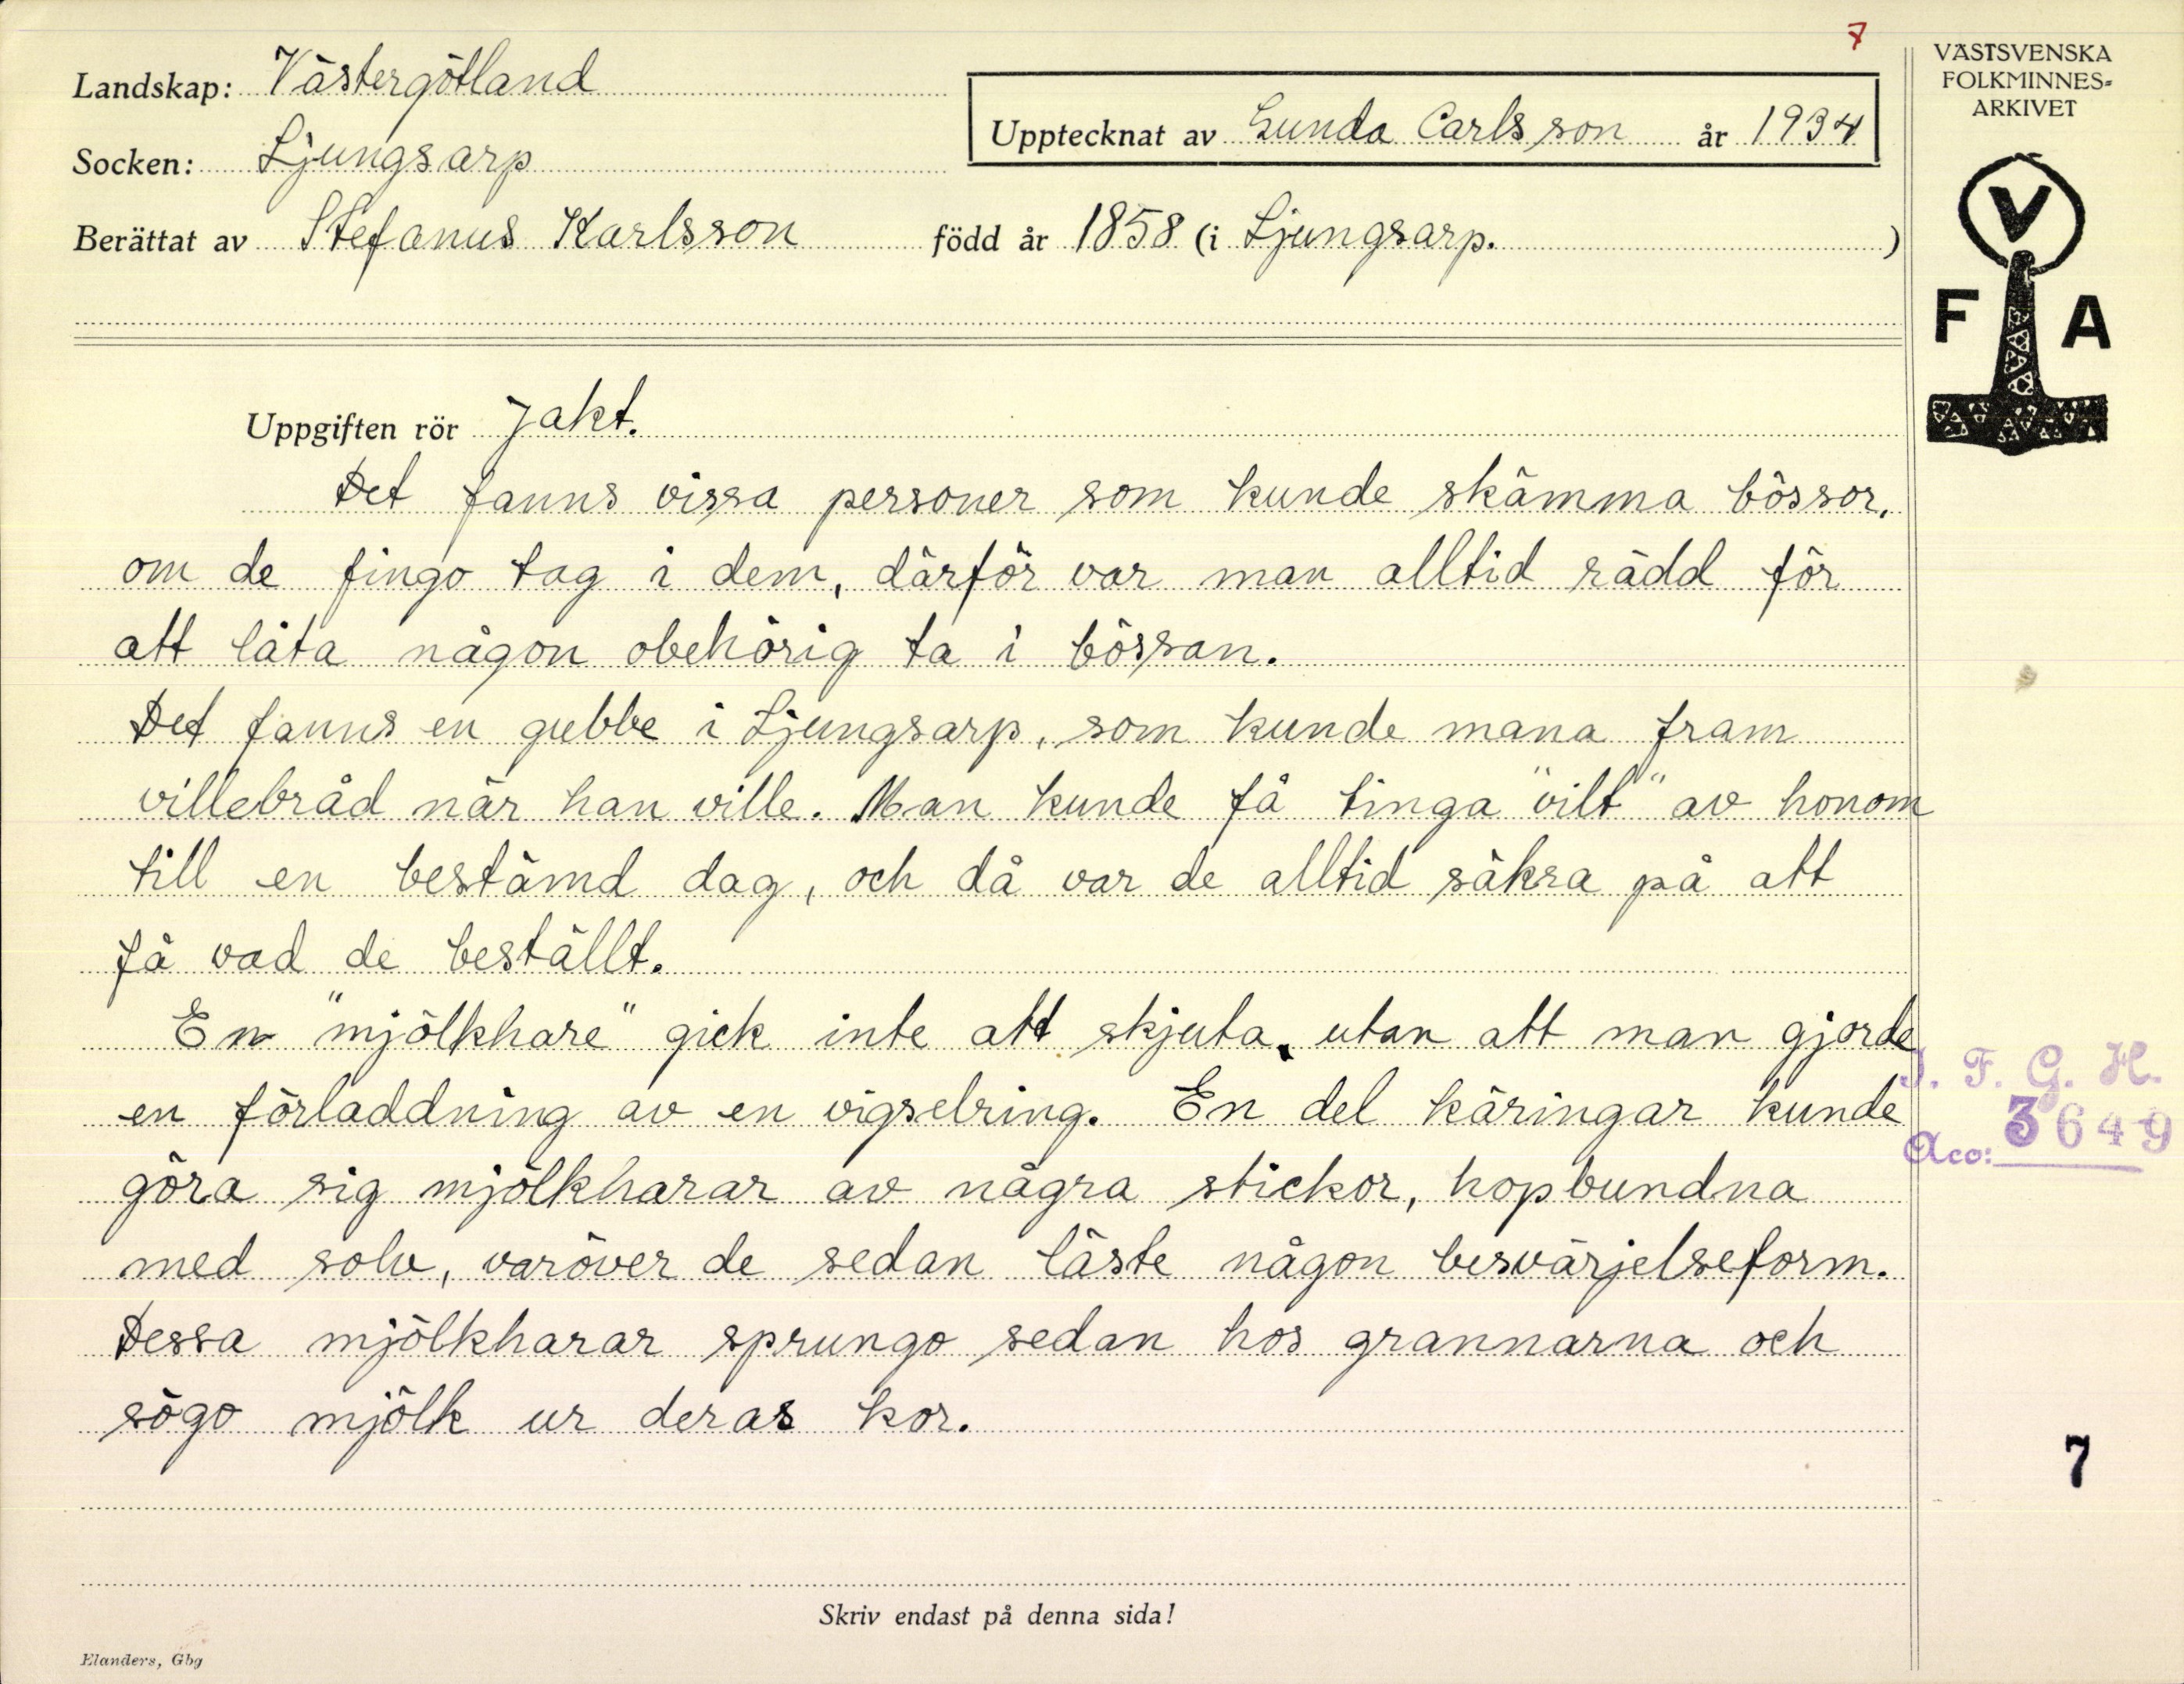 7
VÄSTSVENSKA
FOLKMINNES=
ARKIVET
Landskap: Västergötland
Upptecknat av Gunda Carlsson år 1934
Socken: Ljungsarp
Berättat av Stefanus Karlsson född år 1858 (i Ljungsarp.)
V
F A
Uppgiften rör Jakt.
Det fanns vissa personer som kunde skämma bössor,
om de fingo tag i dem, därför var man alltid rädd för
att låta någon obehörig ta i bössan.
Det fanns en gubbe i Ljungsarp, som kunde mana fram
villebråd när han ville. Man kunde få tinga "vilt" av honom
till en bestämd dag, och då var de alltid säkra på att
få vad de beställt.
En "mjölkhare" gick inte att skjuta, utan att man gjorde
en förladdning av en vigselring. En del käringar kunde
göra sig mjölkharar av några stickor, hopbundna
med solv, varöver de sedan läste någon besvärjelseform.
Dessa mjölkharar sprungo sedan hos grannarna och
sögo mjölk ur deras kor.
I. F. G. H.
Acc: 3649
7
Skriv endast på denna sida!
Elanders, Gbg